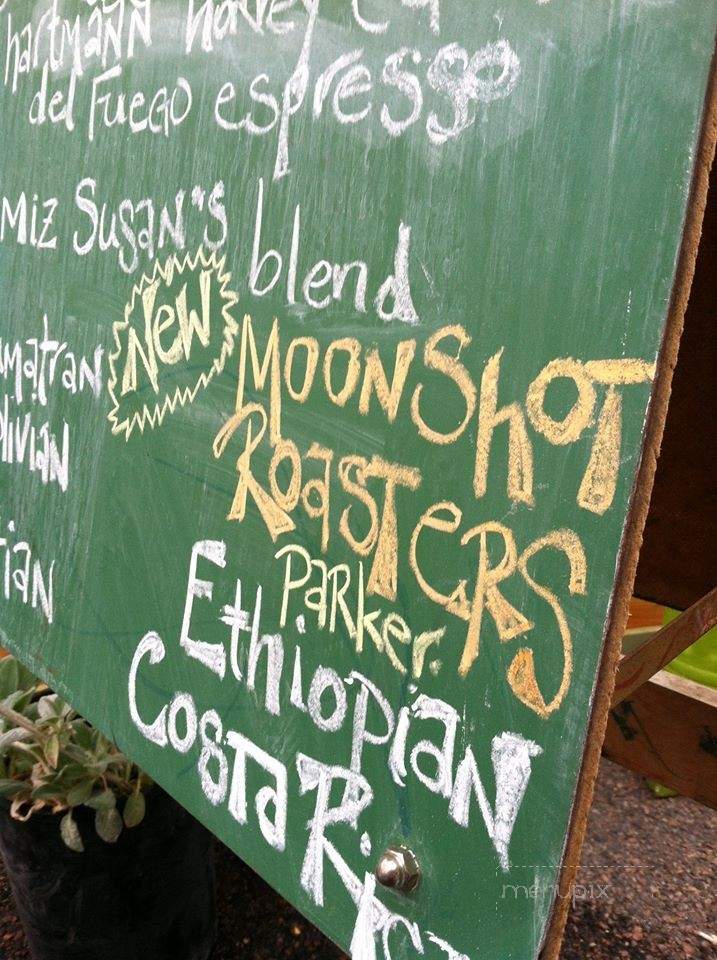 hartmann honey
del Fuego espresso
Miz Susan's blend
New
MoonShot
Roasters
Parker.
Ethiopian
Costa Rica
menupix